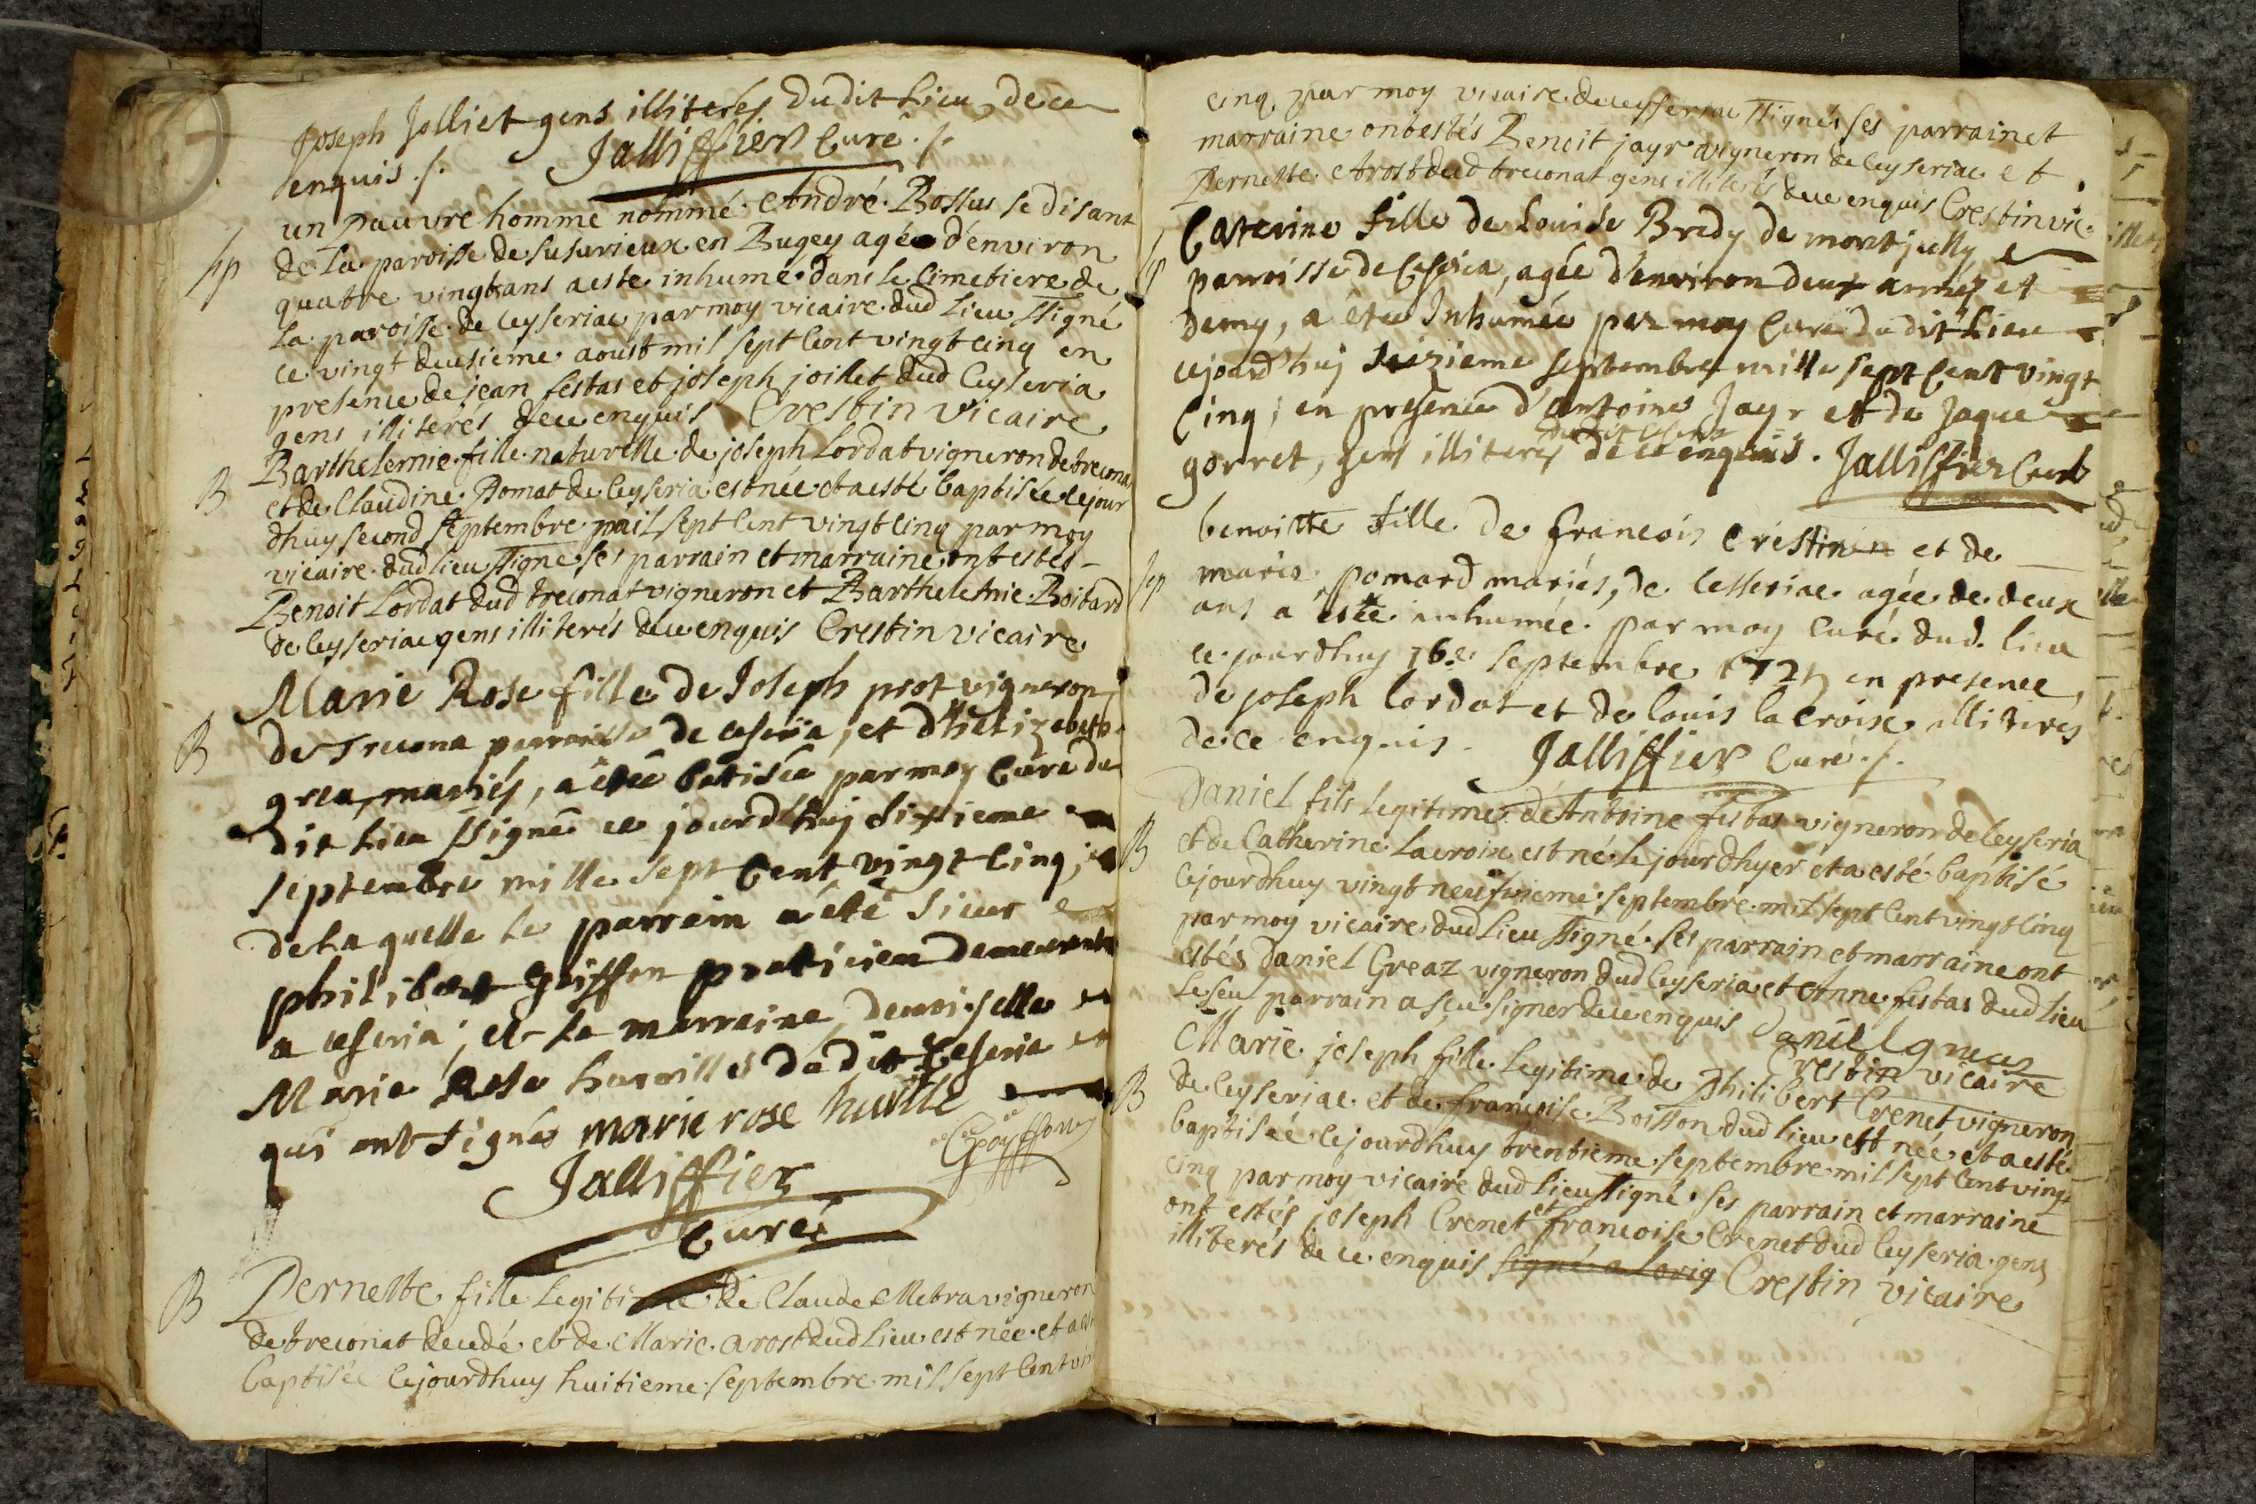 Joseph Jolliet gens illiterés dudit Lieu, de ce
enquis ./. Jalliffier Curé ./.
un pauvre homme nommé André Bossus se disant
Sep de La paroisse de susurieux en Bugey agée d'environ
quatre vingt ans a esté inhumé dans le Cimetiere de
La paroisse de Ceyseriac par moy vicaire dud Lieu ssigné
ce vingt deusieme aoust mil sept Cent vingt cinq en
presence de jean festas et joseph joillet dud Ceyseria
gens illiterés de ce enquis Crestin vicaire
Barthelemie fille naturelle de joseph Lordat vigneron de trecona
B et de Claudine Pomat de Ceyseria est née et a esté baptisée cejour
dhuy second septembre mil sept Cent vingt cinq par moy
vicaire dud lieu ssigné ses parrain et marraine ont estés
Benoit Lordat dud treconat vigneron et Barthelemie Boitard
de Ceyseriac gens illiterés de ce enquis Crestin vicaire
Marie Rose fille de Joseph prost vigneron
B de Trecona parroisse de ceseria, et d'helizabeth
grea, mariés, a été batisée par moy Curé du
dit Lieu ssigné ce jourd'huj sixieme
septembre mille sept Cent vingt Cinq;
de La quelle Le parrain a été sieur
philibert griffon praticien demeurant
a ceseria; et La marraine demoiselle
Marie Rose huville dudit Ceseria
qui ont signés marie rose huille
Jalliffier
Curé
B Pernette fille Legitime de Claude Metra vigneron
de treconat decedé et de Marie arost dud Lieu est née et a esté
baptisée Cejourdhuy huitieme septembre mil sept Cent vin
cinq, par moy vicaire de ceyseriac ssigné ses parrain et
marraine ont estés Benoit jayr vigneron de Ceyseriac et
Pernette Arost dud treconat gens illiterés de ce enquis Crestin vic.
Caterine fille de Louise Bredy de montjully
Sep parroisse de Ceseria, agée d'environ deux années et
demy, a êtée Inhumée par moy Curé dudit Lieu
cejourd'huj seizieme septembre mille sept Cent vingt
Cinq; en presence d'Antoine Jayr et de Jaque
gorret, gens illiterés de ce enquis. Jalliffier Curé
benoitte fille de francois Crestin et de
Sep marie pomard mariés, de Cesseriac agée de deux
ans a esté inhumée par moy Curé dud. lieu
ce jourdhuy 16e septembre 1725 en presence
de joseph lordat et de louis la croix illiterés
de ce enquis. Jalliffier Curé ./.
Daniel fils Legitime d'Antoine festas vigneron de Ceyseria
B et de Catherine Lacroix est né le jourdhyer et a esté baptisé
Cejourdhuy vingt neufvieme septembre mil sept Cent vingt cinq
par moy vicaire dud Lieu ssigné ses parrain et marraine ont
estés Daniel Greaz vigneron dud Ceyseria et Anne festas dud Lieu
Le seu parrain a sçeu signer de ce enquis Daniel Greas
Crestin vicaire
Marie joseph fille Legitime de Philibert Crenet vigneron
B de Ceyseriac et de françoise Boisson dud lieu est née et a esté
baptisée Cejourdhuy trentieme septembre mil sept Cent vingt
cinq par moy vicaire dud Lieu ssigné ses parrain et marraine
ont estés joseph Crenet et francoise Crenet dud Ceyseria gens
illiterés de ce enquis signé a Lorig Crestin vicaire